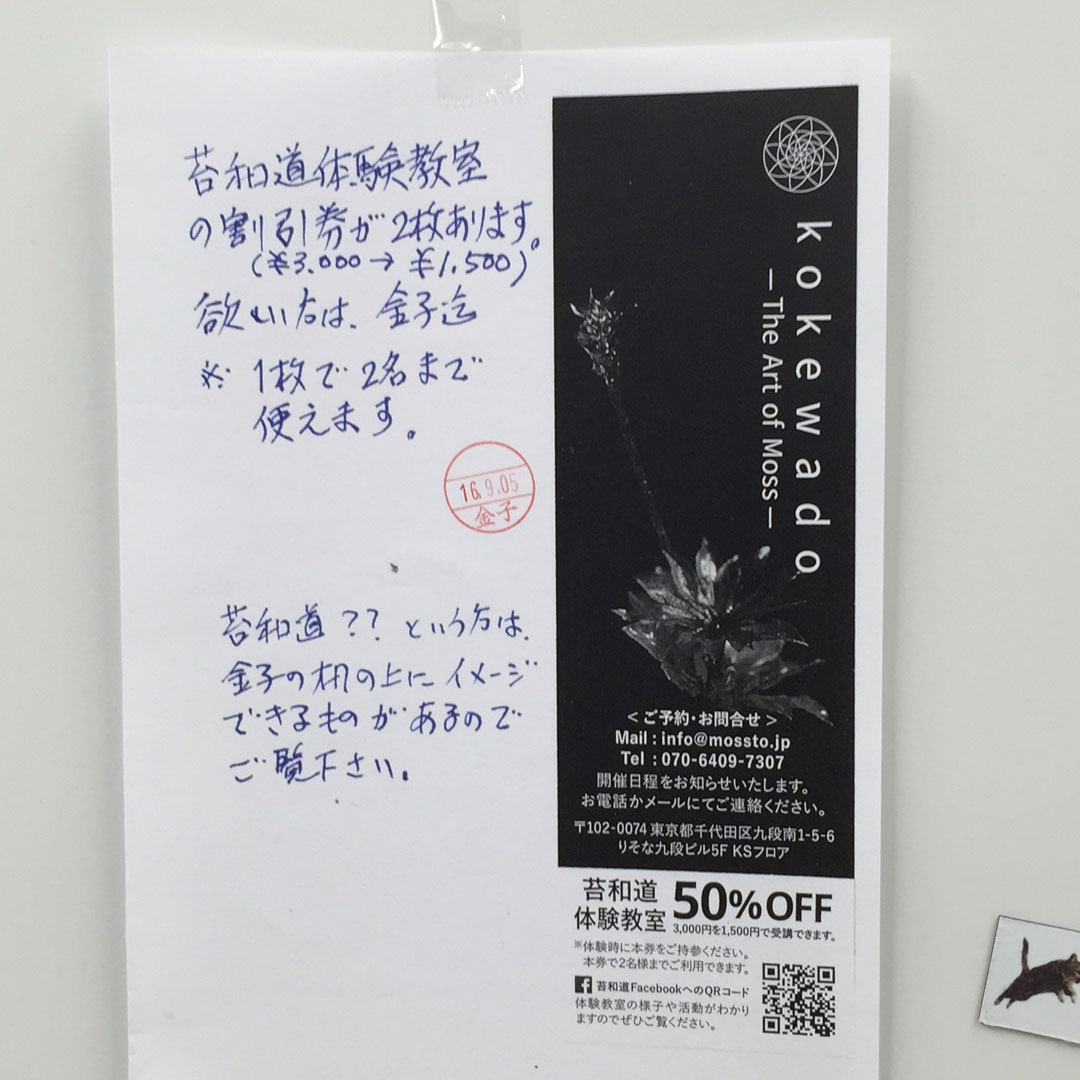 苔和道体験教室
の割引券が2枚あります。
(¥3.000→¥1.500)
欲しい方は、金子迄
※ 1枚で2名まで
使えます。
16.9.05
金子
苔和道??という方は、
金子の机の上にイメージ
できるものがあるので
ご覧下さい。
kokewado
—The Art of Moss—
<ご予約・お問合せ>
Mail : info@mossto.jp
Tel : 070-6409-7307
開催日程をお知らせいたします。
お電話かメールにてご連絡ください。
〒102-0074 東京都千代田区九段南1-5-6
りそな九段ビル5F KSフロア
苔和道
体験教室
50%OFF
3,000円を1,500円で受講できます。
※体験時に本券をご持参ください。
本券で2名様までご利用できます。
f 苔和道FacebookへのQRコード
体験教室の様子や活動がわかり
ますのでぜひご覧ください。